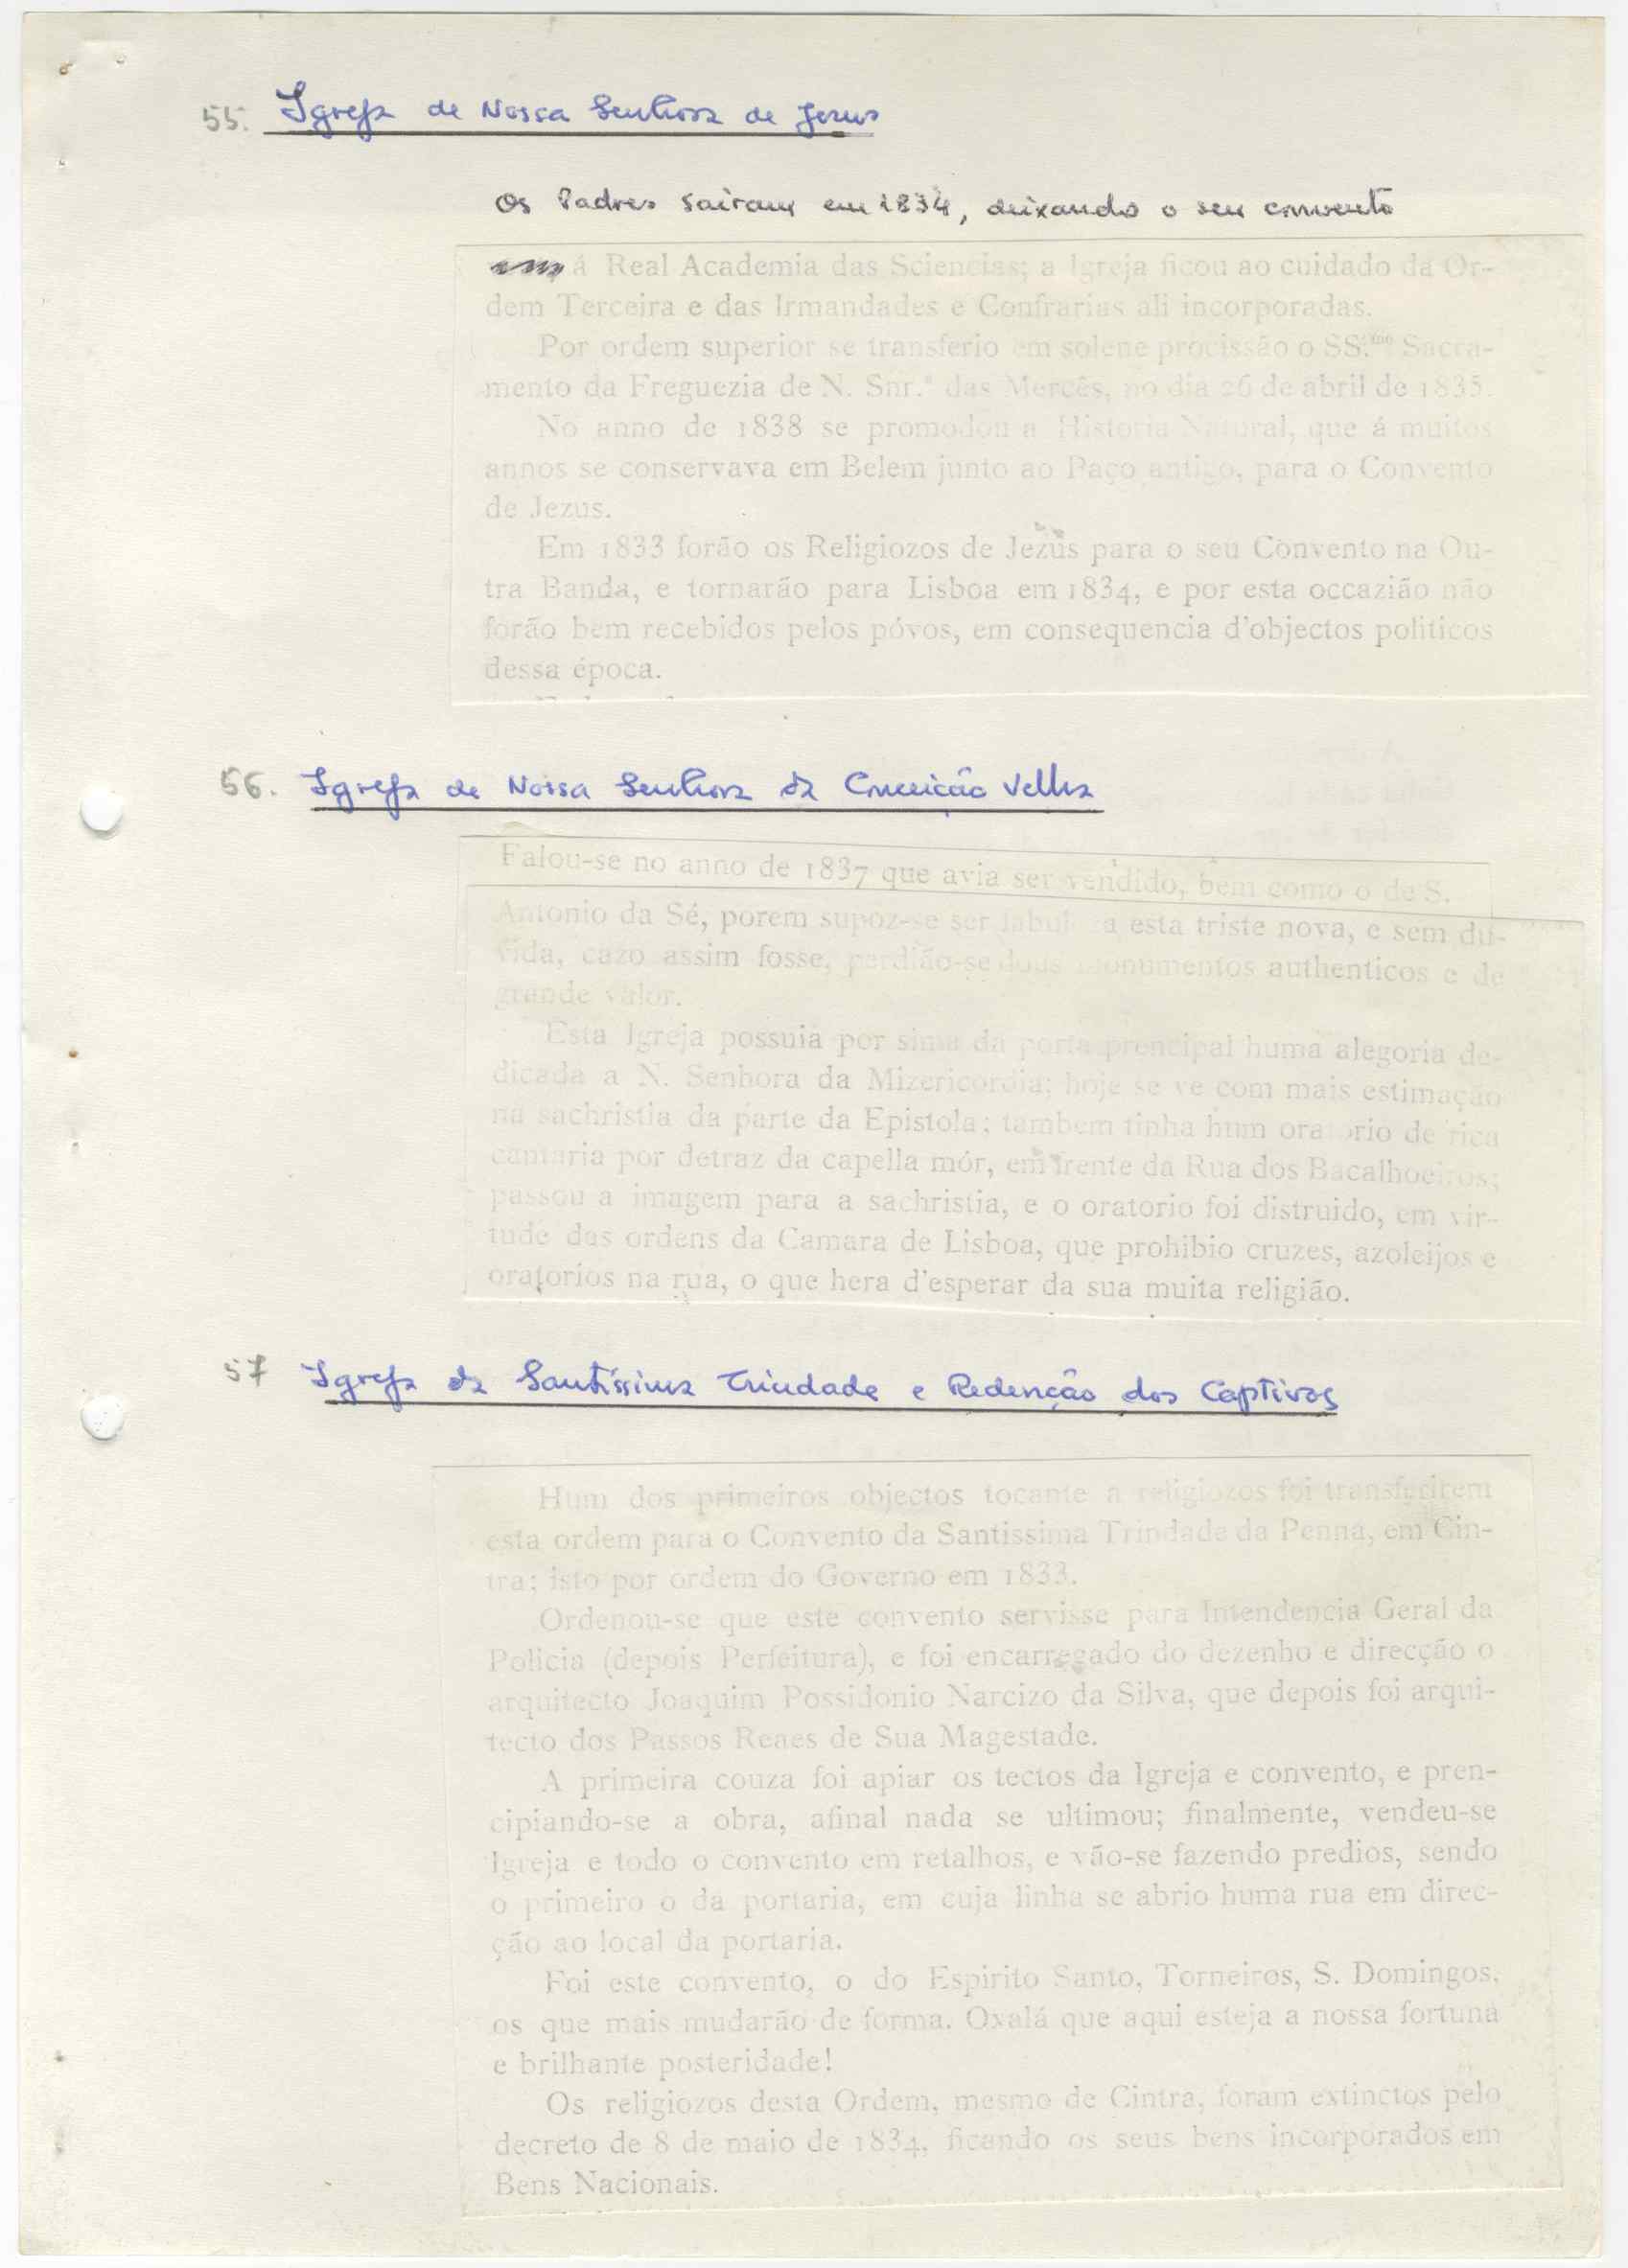 55. Igreja de Nossa Senhora de Jesus
Os Padres sairam em 1834, deixando o seu convento
á Real Academia das Sciencias; a Igreja ficou ao cuidado da Or-
dem Terceira e das Irmandades e Confrarias ali incorporadas.
Por ordem superior se transferio em solene procissão o SS.mo Sacra-
mento da Freguezia de N. Snr.ª das Mercês, no dia 26 de abril de 1835.
No anno de 1838 se promodou a Historia Natural, que á muitos
annos se conservava em Belem junto ao Paço antigo, para o Convento
de Jezus.
Em 1833 forão os Religiozos de Jezus para o seu Convento na Ou-
tra Banda, e tornarão para Lisboa em 1834, e por esta occazião não
forão bem recebidos pelos póvos, em consequencia d'objectos politicos
dessa época.
56. Igreja de Nossa Senhora da Conceição Velha
Falou-se no anno de 1837 que avia ser vendido, bem como o de S.
Antonio da Sé, porem supoz-se ser fabuloza esta triste nova, e sem du-
vida, cazo assim fosse, perdião-se dous monumentos authenticos e de
grande valor.
Esta Igreja possuia por sima da porta prencipal huma alegoria de-
dicada a N. Senhora da Mizericordia; hoje se ve com mais estimação
na sachristia da parte da Epistola; tambem tinha hum oratorio de rica
cantaria por detraz da capella mór, em frente da Rua dos Bacalhoeiros;
passou a imagem para a sachristia, e o oratorio foi distruido, em vir-
tude das ordens da Camara de Lisboa, que prohibio cruzes, azoleijos e
oratorios na rua, o que hera d'esperar da sua muita religião.
57 Igreja da Santíssima Trindade e Redenção dos Captivos
Hum dos primeiros objectos tocante a religiozos foi transferirem
esta ordem para o Convento da Santissima Trindade da Penna, em Cin-
tra; isto por ordem do Governo em 1833.
Ordenou-se que este convento servisse para Intendencia Geral da
Policia (depois Perfeitura), e foi encarregado do dezenho e direcção o
arquitecto Joaquim Possidonio Narcizo da Silva, que depois foi arqui-
tecto dos Passos Reaes de Sua Magestade.
A primeira couza foi apiar os tectos da Igreja e convento, e pren-
cipiando-se a obra, afinal nada se ultimou; finalmente, vendeu-se
Igreja e todo o convento em retalhos, e vão-se fazendo predios, sendo
o primeiro o da portaria, em cuja linha se abrio huma rua em direc-
ção ao local da portaria.
Foi este convento, o do Espirito Santo, Torneiros, S. Domingos,
os que mais mudarão de forma. Oxalá que aqui esteja a nossa fortuna
e brilhante posteridade!
Os religiozos desta Ordem, mesmo de Cintra, foram extinctos pelo
decreto de 8 de maio de 1834, ficando os seus bens incorporados em
Bens Nacionais.